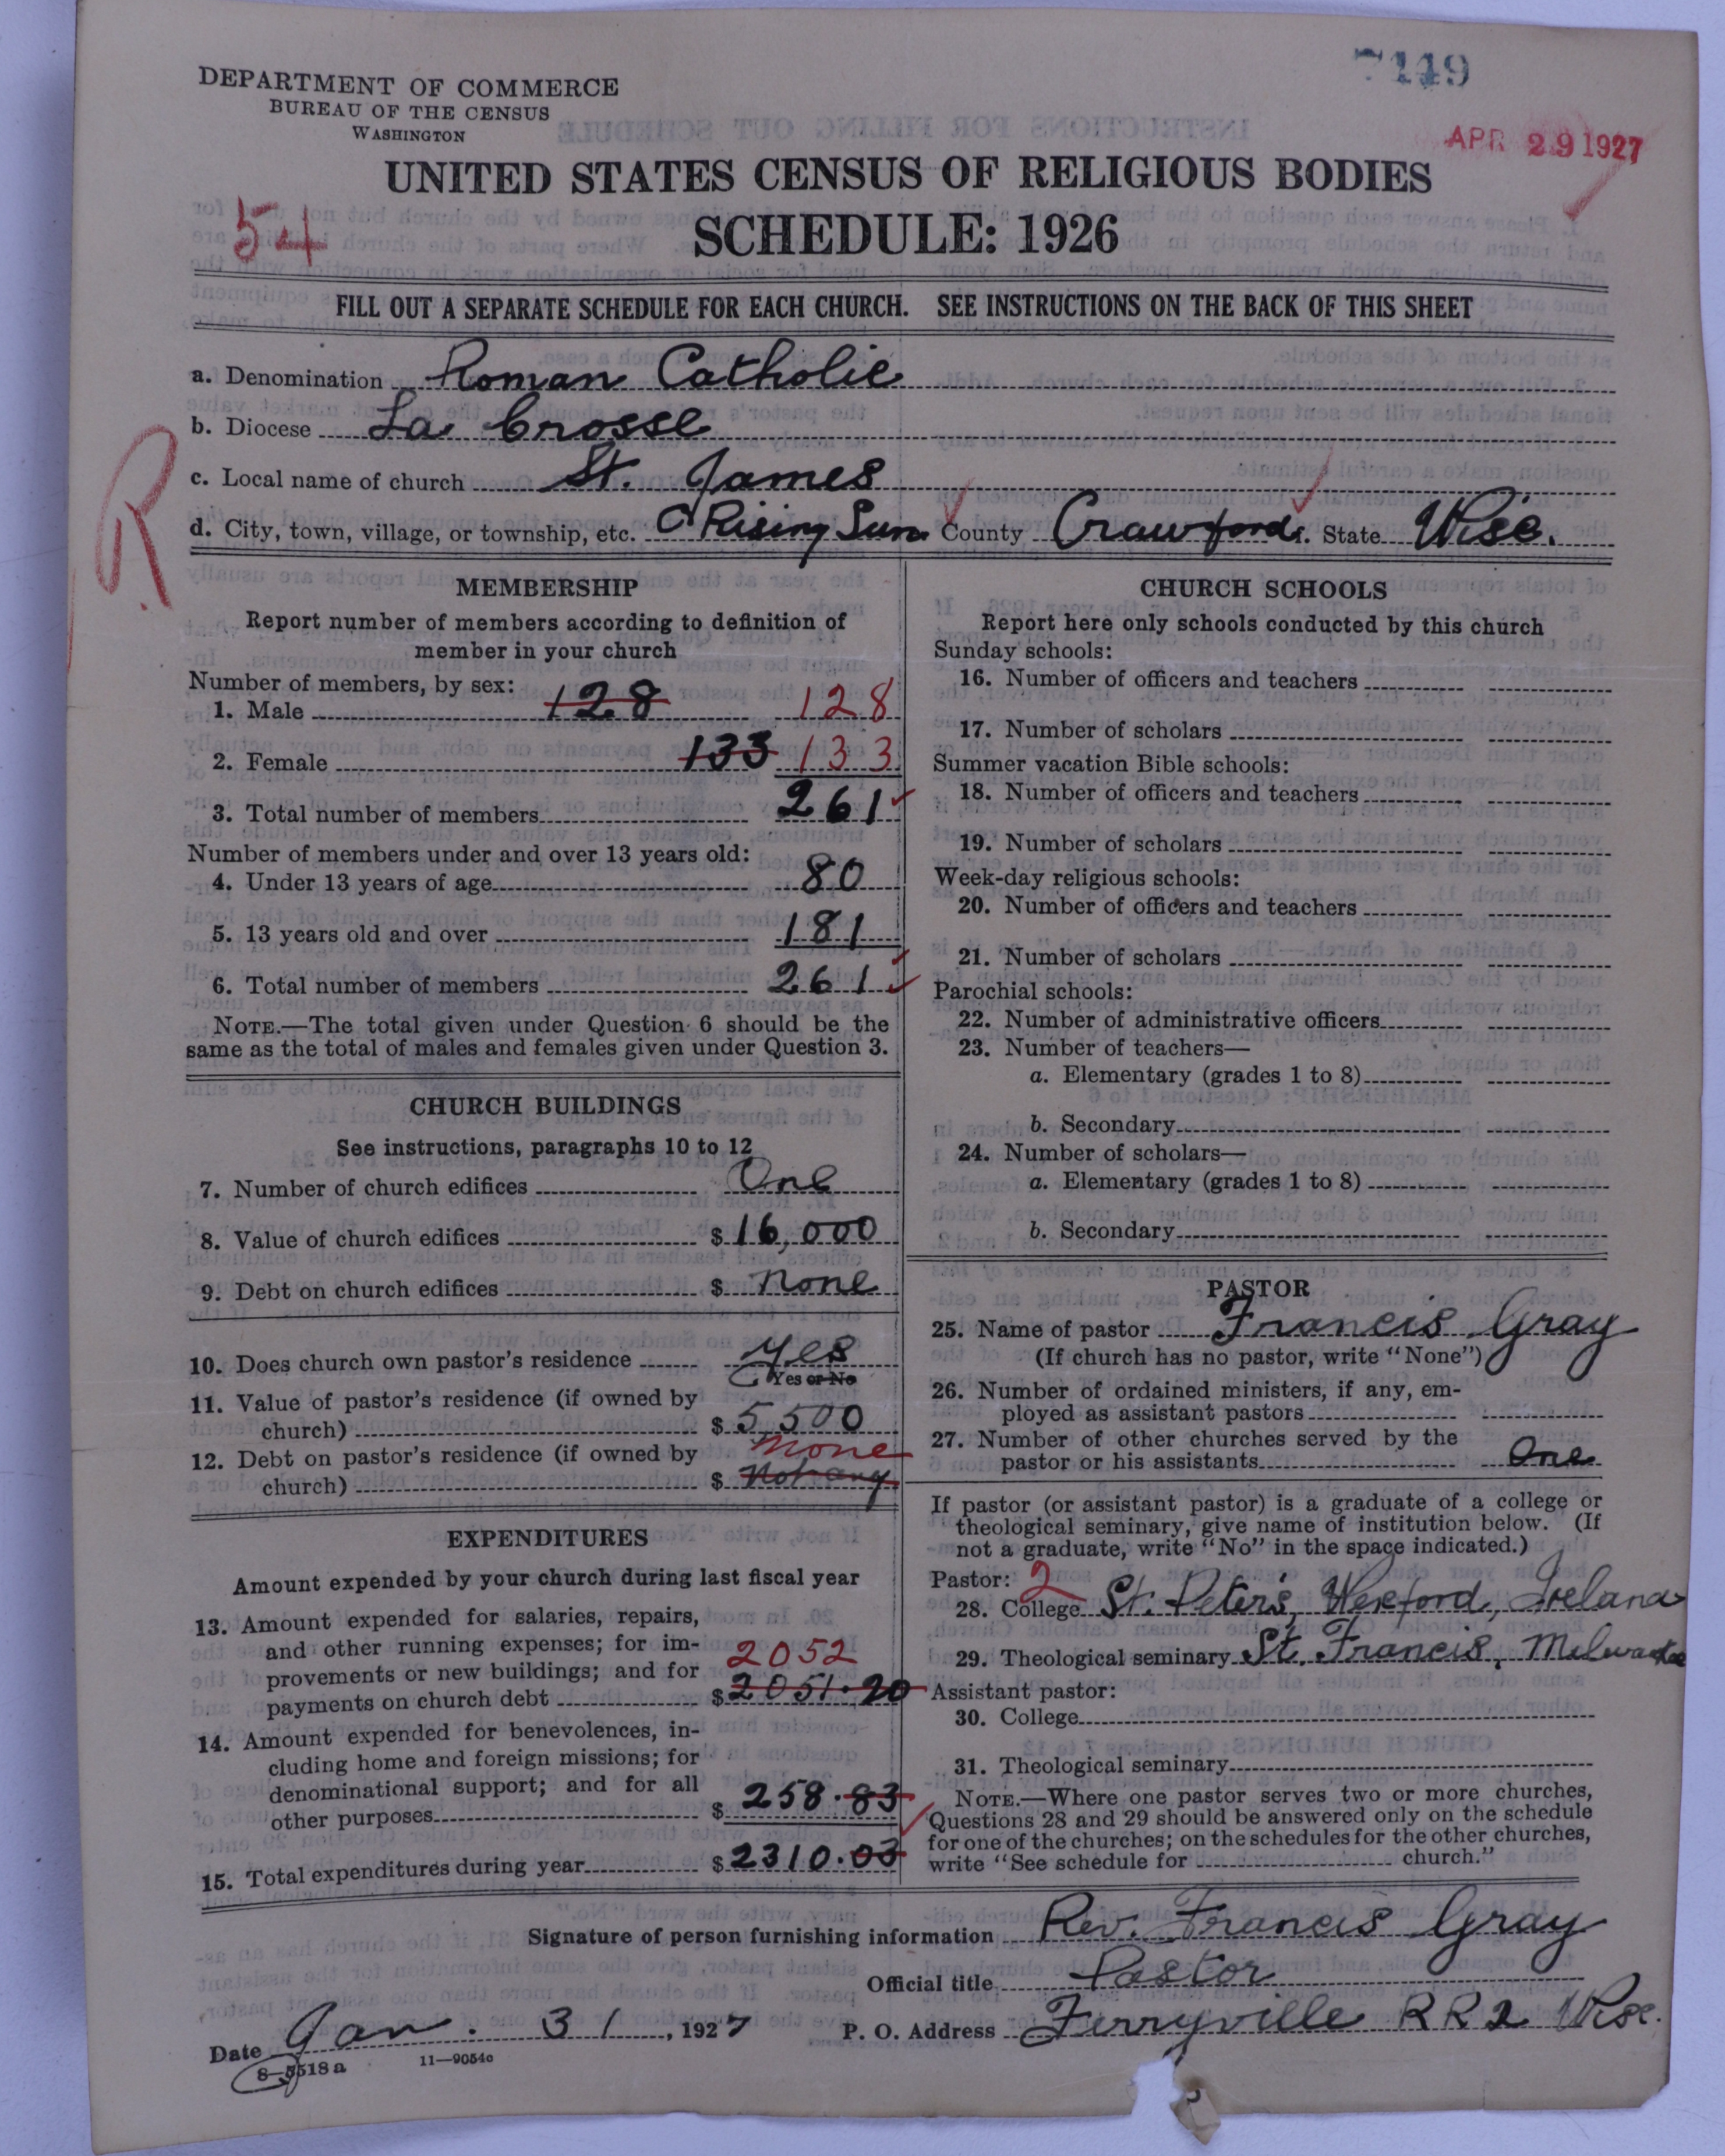 7449
DEPARTMENT OF COMMERCE
BUREAU OF THE CENSUS
WASHINGTON
APR 29 1927
UNITED STATES CENSUS OF RELIGIOUS BODIES
54
SCHEDULE: 1926
FILL OUT A SEPARATE SCHEDULE FOR EACH CHURCH. SEE INSTRUCTIONS ON THE BACK OF THIS SHEET
a. Denomination Roman Catholic
b. Diocese La Crosse
R
c. Local name of church St. James
d. City, town, village, or township, etc. Rising Sun County Crawford. State Wisc.
MEMBERSHIP
Report number of members according to definition of
member in your church
Number of members, by sex:
1. Male 128 128
2. Female 133 133
3. Total number of members 261
Number of members under and over 13 years old:
4. Under 13 years of age 80
5. 13 years old and over 181
6. Total number of members 261
NOTE.—The total given under Question 6 should be the
same as the total of males and females given under Question 3.
CHURCH BUILDINGS
See instructions, paragraphs 10 to 12
7. Number of church edifices One
8. Value of church edifices $16,000
9. Debt on church edifices $ none
10. Does church own pastor's residence Yes
Yes or No
11. Value of pastor's residence (if owned by
church) $5,500
12. Debt on pastor's residence (if owned by none
church) $ Not any
EXPENDITURES
Amount expended by your church during last fiscal year
13. Amount expended for salaries, repairs,
and other running expenses; for im-
provements or new buildings; and for 2052
payments on church debt $2051.20
14. Amount expended for benevolences, in-
cluding home and foreign missions; for
denominational support; and for all
other purposes $258.83
15. Total expenditures during year $2310.03
CHURCH SCHOOLS
Report here only schools conducted by this church
Sunday schools:
16. Number of officers and teachers
17. Number of scholars
Summer vacation Bible schools:
18. Number of officers and teachers
19. Number of scholars
Week-day religious schools:
20. Number of officers and teachers
21. Number of scholars
Parochial schools:
22. Number of administrative officers
23. Number of teachers—
a. Elementary (grades 1 to 8)
b. Secondary
24. Number of scholars—
a. Elementary (grades 1 to 8)
b. Secondary
PASTOR
25. Name of pastor Francis Gray
(If church has no pastor, write "None")
26. Number of ordained ministers, if any, em-
ployed as assistant pastors
27. Number of other churches served by the
pastor or his assistants One
If pastor (or assistant pastor) is a graduate of a college or
theological seminary, give name of institution below. (If
not a graduate, write "No" in the space indicated.)
Pastor: 2
28. College St. Peter's, Wexford, Ireland
29. Theological seminary St. Francis, Milwaukee
Assistant pastor:
30. College
31. Theological seminary
NOTE.—Where one pastor serves two or more churches,
Questions 28 and 29 should be answered only on the schedule
for one of the churches; on the schedules for the other churches,
write "See schedule for church."
Signature of person furnishing information Rev. Francis Gray
Official title Pastor
Date Jan. 31, 1927 P. O. Address Ferryville RR2 Wisc.
8—5518a 11—9054c